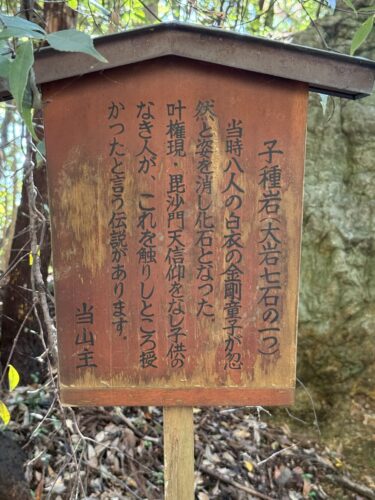 子種岩(大岩七石の一つ)
当時八人の白衣の金剛童子が忽
然と姿を消し化石となった.
叶権現・毘沙門天信仰をなし子供の
なき人が、これを触りしところ授
かったと言う伝説があります.
当山主